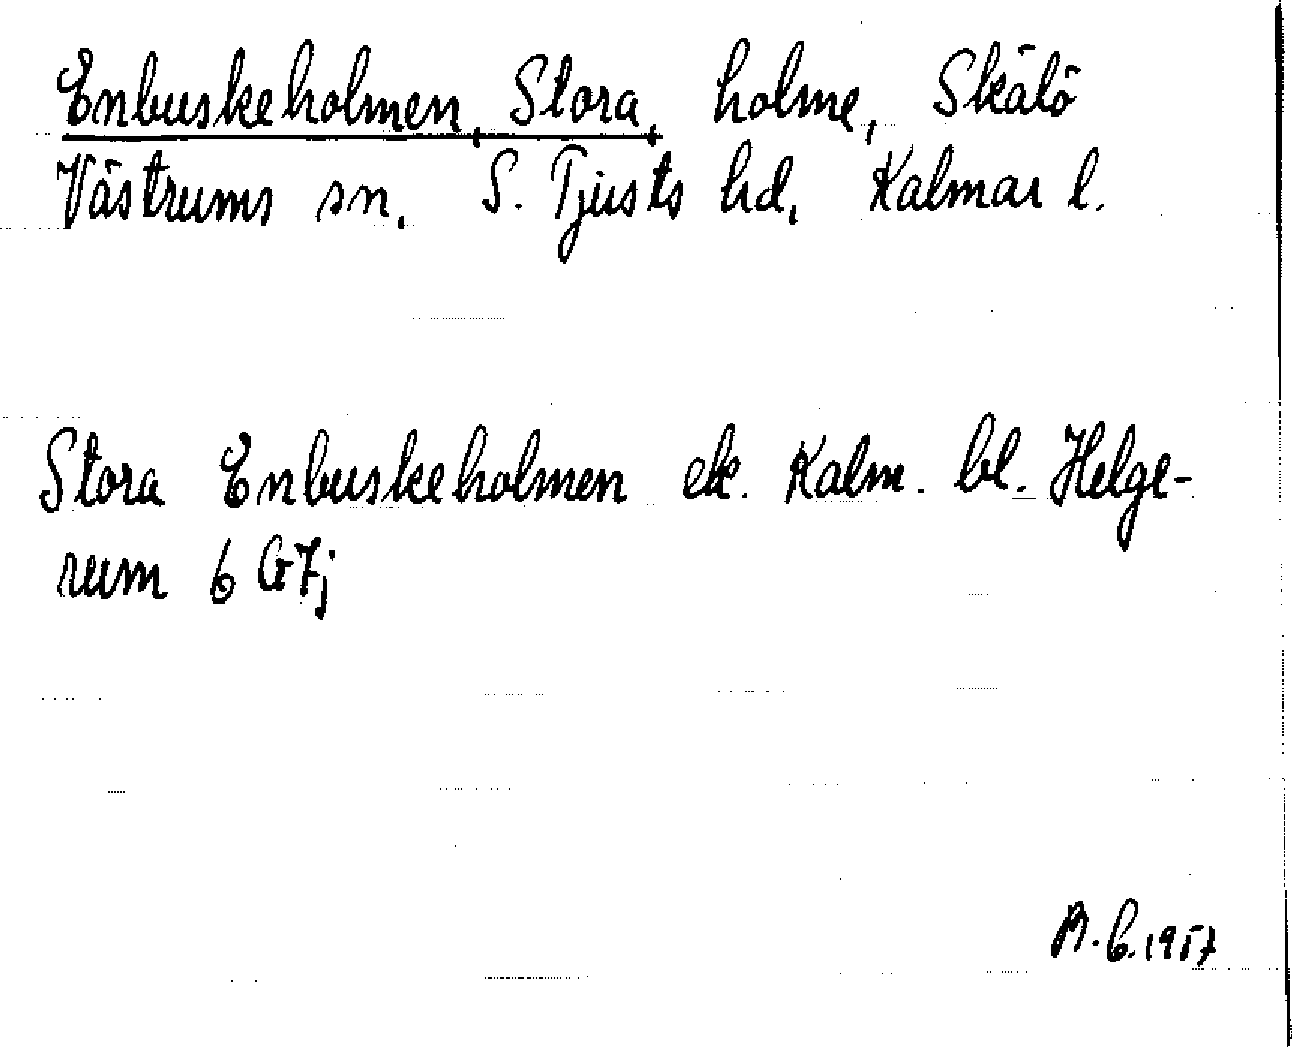 Enbuskeholmen, Stora, holme, Skälö
Västrums sn. S. Tjusts hd, Kalmar l.
Stora Enbuskeholmen ek. Kalm. bl. Helge-
rum 6 G7j
B. 1957